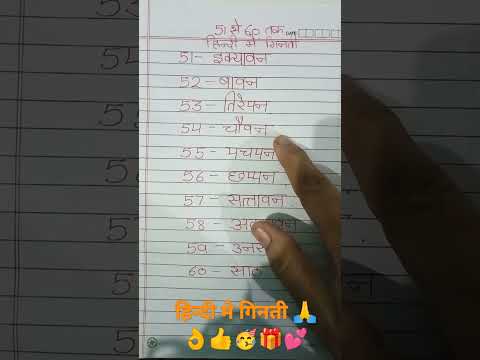 51 से 60 तक
हिन्दी में गिनती
51- इक्यावन
52 - बावन
53 - तिरेपन
54 - चौवन
55 - पचपन
56 - छप्पन
57 - सत्तावन
58 -
59 -
60 -
हिन्दी में गिनती 🙏
👌👍🥳🎁💕